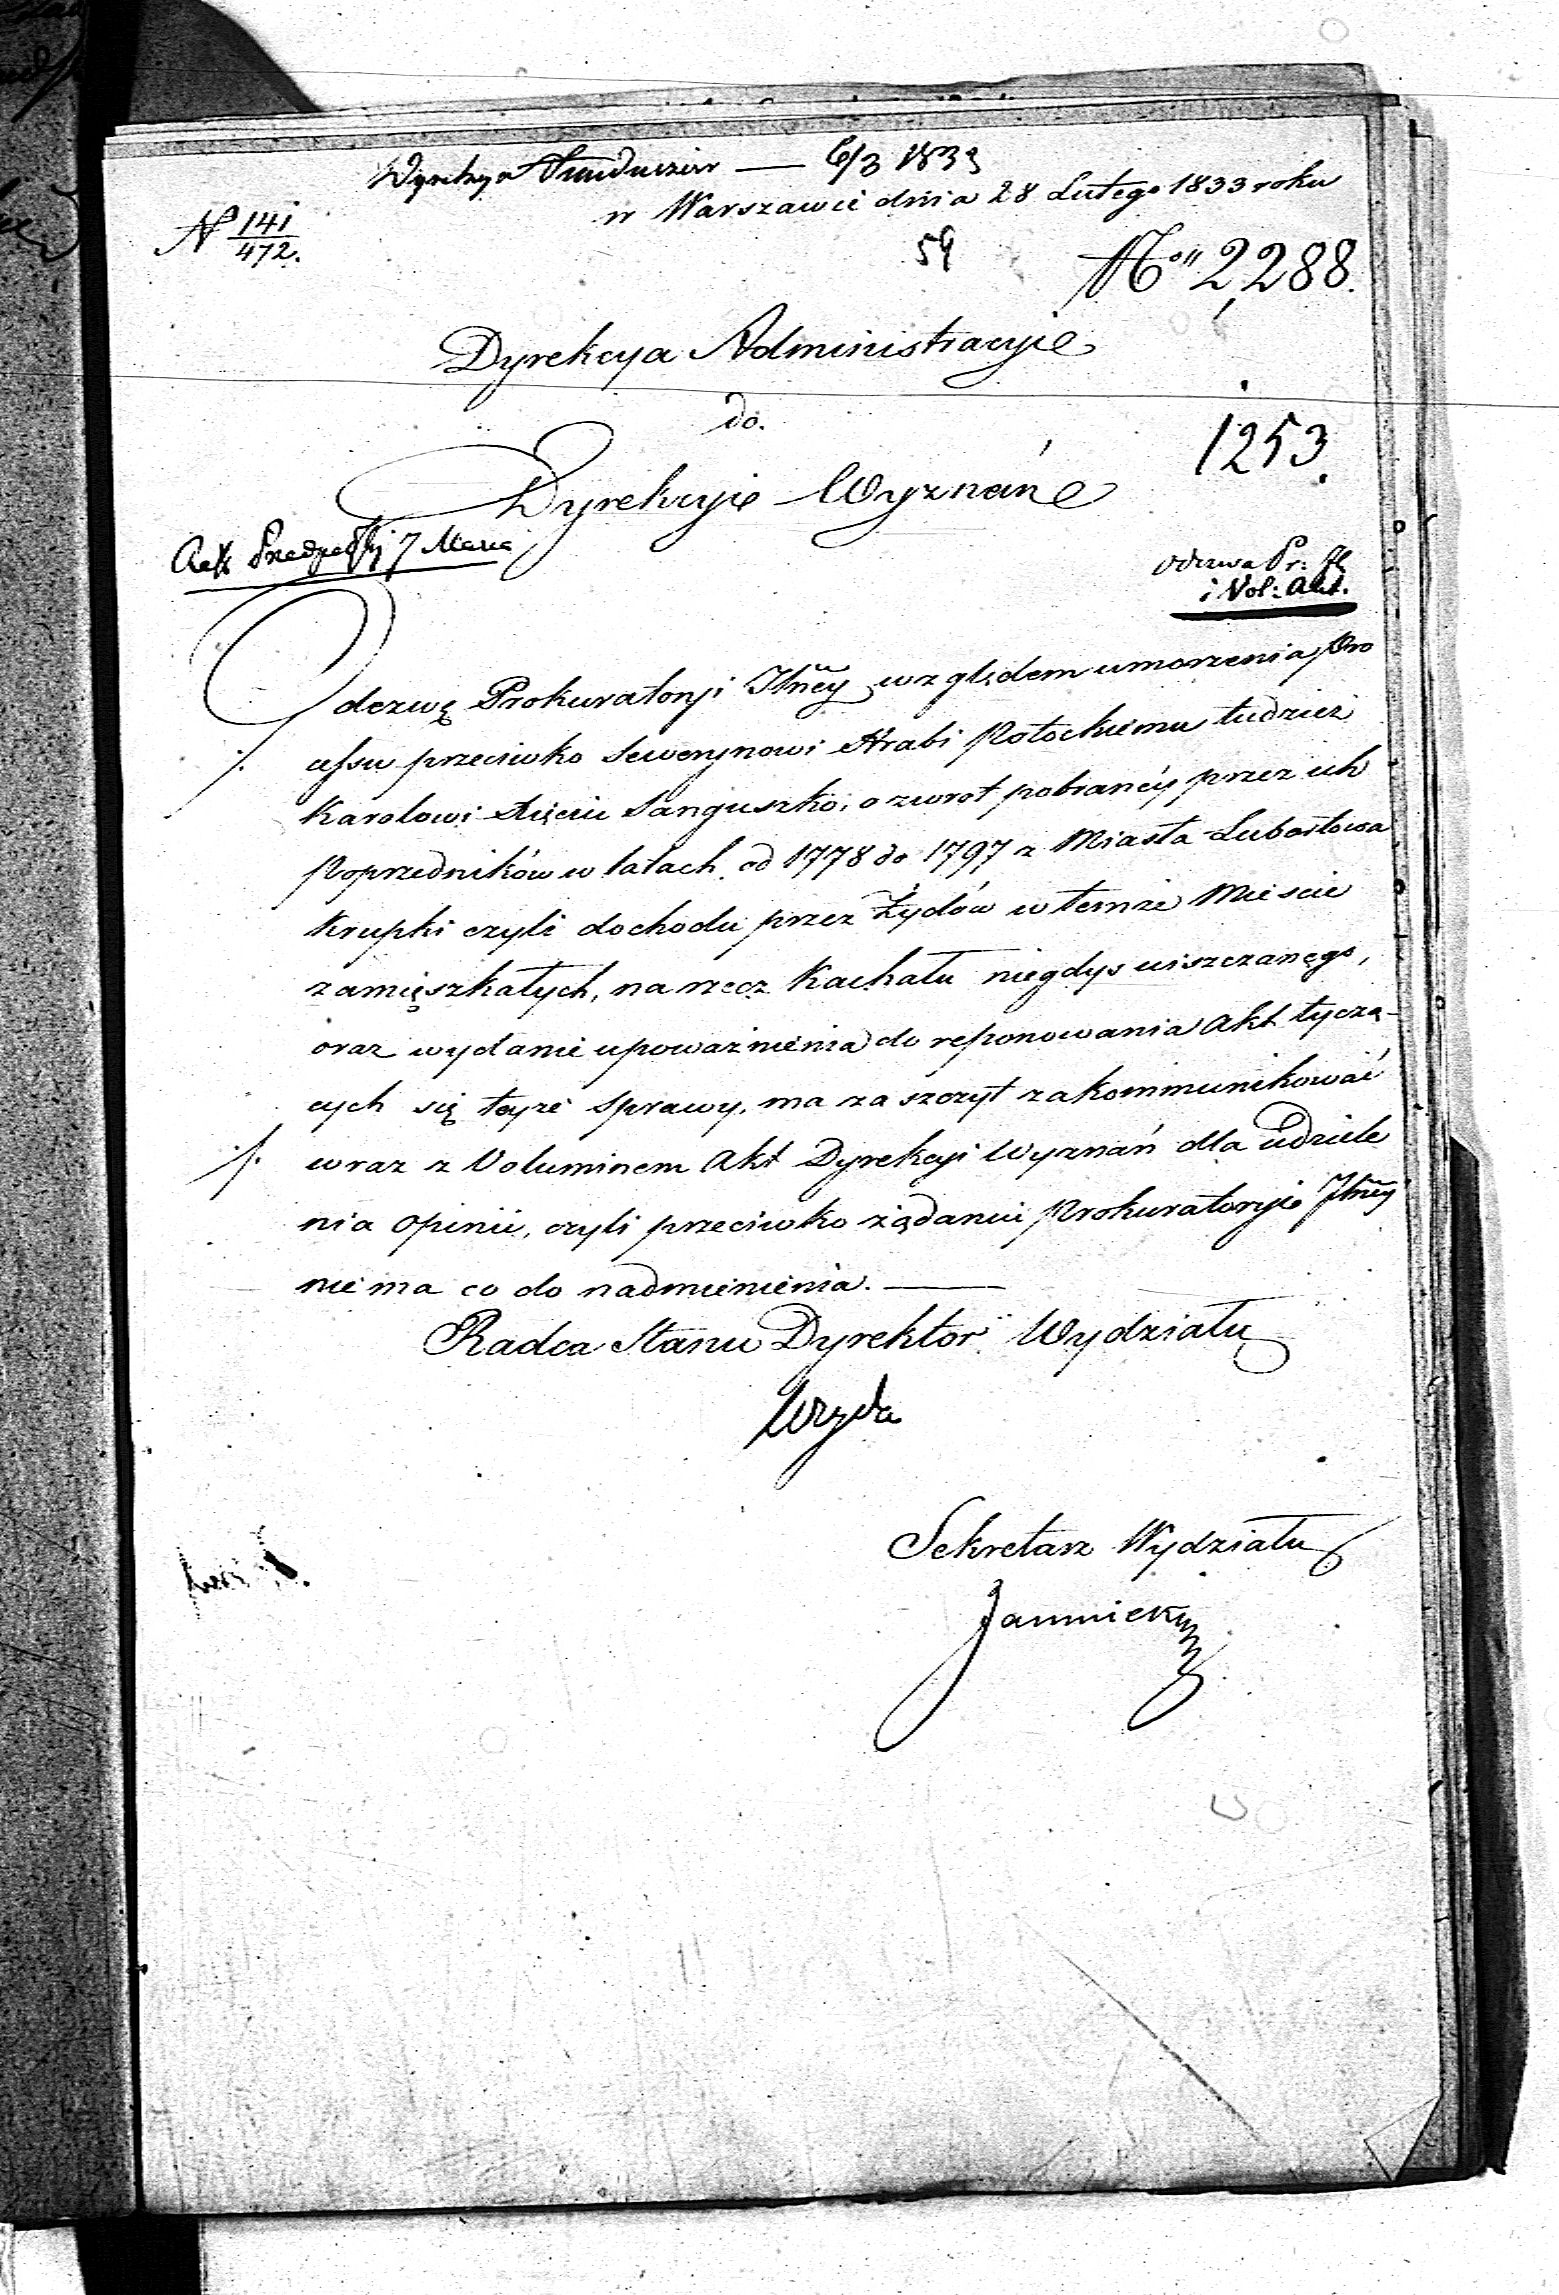 Dyrekcya Funduszów — 6/3 1833
w Warszawie dnia 28 Lutego 1833 roku
N 141/472.
59
No 2,288.
Dyrekcya Administracyie
do.
1253.
Dyrekcyie Wyznań
7 Marca
odezwa Pr: JL
i Vol: Akt.
Odezwę Prokuratoryi Jlnéy względem umorzenia Pro
cessu przeciwko Sewerynowi Hrabi Potockiemu tudzież
Karolowi Xięciu Sanguszko, o zwrot pobranéy przez ich
Poprzedników w latach od 1778 do 1797 z Miasta Lubartowa
Krupki czyli dochodu przez Żydów w temże Mieście
zamięszkałych, na rzecz Kachału niegdys uiszczanego,
oraz wydanie upoważnienia do reponowania Akt tyczą-
cych się teyże sprawy, ma zaszczyt zakommunikować
wraz z Voluminem Akt Dyrekcyi Wyznań dla udziele
nia opinii, czyli przeciwko żądaniu Prokuratoryie Jlnéy
nie ma co do nadmienienia. —
Radca Stanu Dyrektor Wydziału
Sekretarz Wydziału